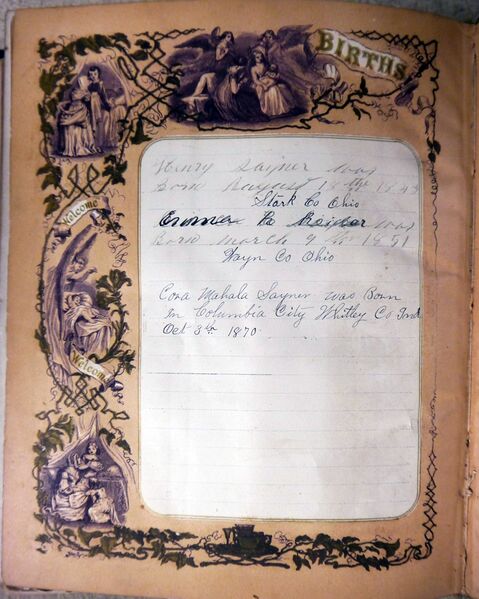 BIRTHS
Welcome
Welcome
Henry Sayner was
Born August 13 the 18
Stark Co Ohio
Emma was
Born March 9 th 1851
Wayn Co Ohio
Cora Mahala Sayner was Born
In Columbia City Whitley Co Ind
Oct 3th 1870